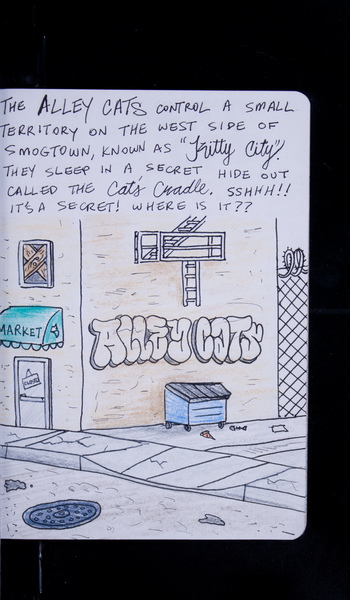 THE ALLEY CATS CONTROL A SMALL
TERRITORY ON THE WEST SIDE OF
SMOGTOWN, KNOWN AS "Kitty City".
THEY SLEEP IN A SECRET HIDE OUT
CALLED THE Cat's Cradle. SSHHH!!
IT'S A SECRET! WHERE IS IT??
MARKET
ALLEY CATS